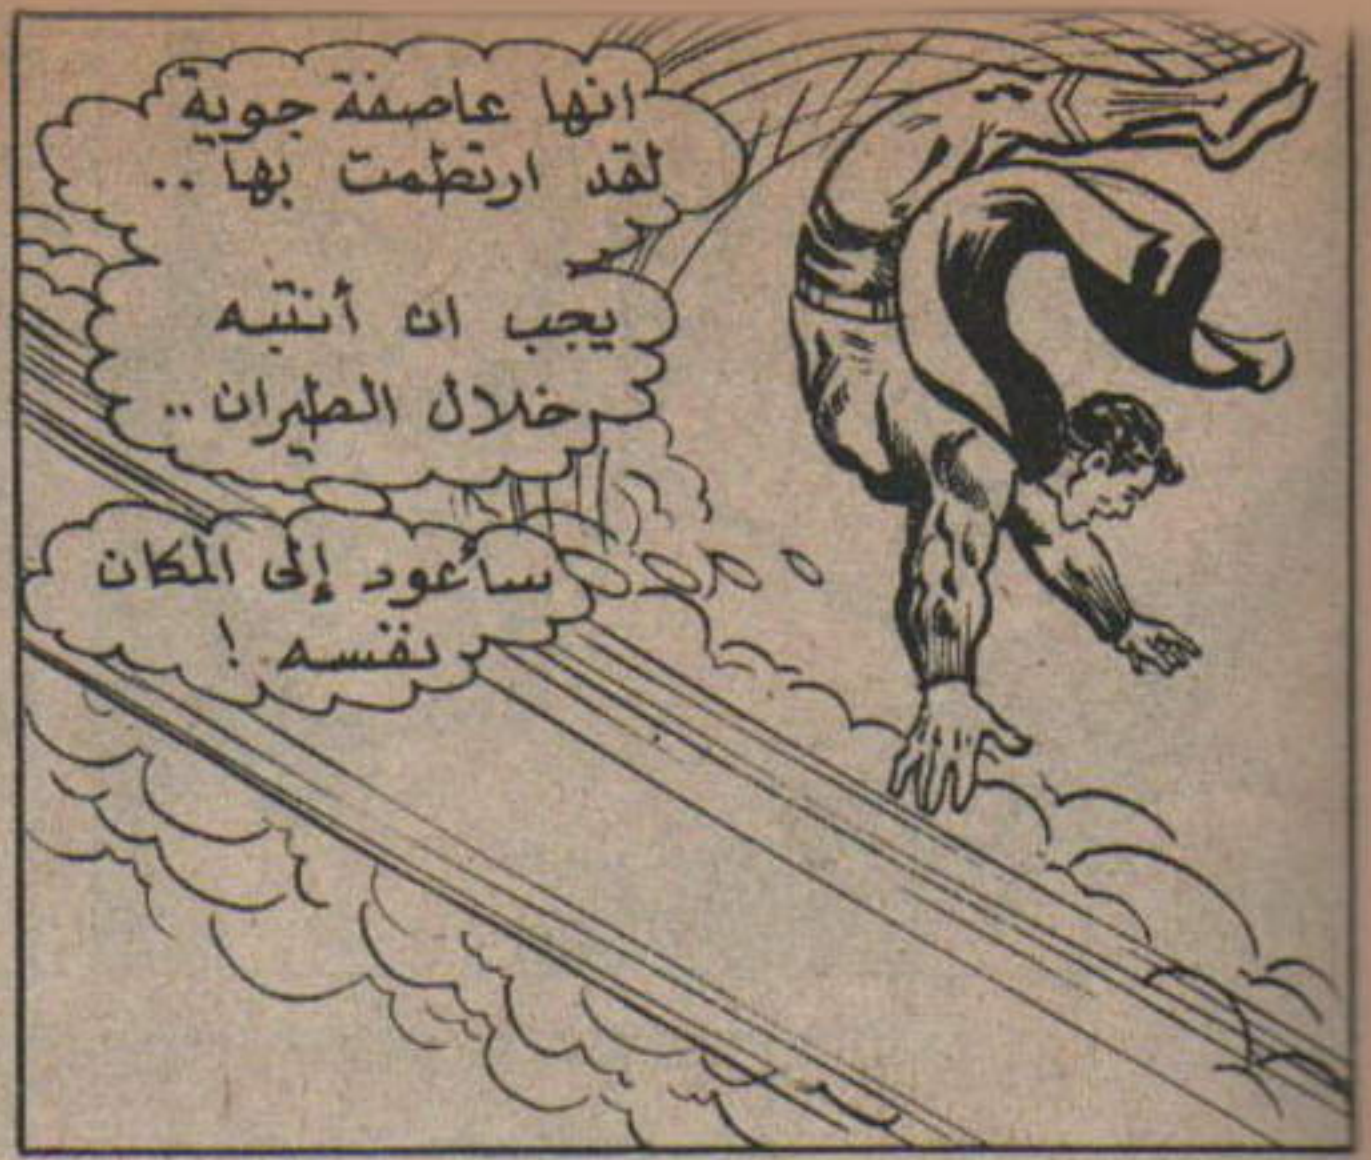 انها عاصفة جوية
لقد ارتطمت بها ..
يجب ان أنتبه
خلال الطيران ..
سأعود إلى المكان
نفسه !